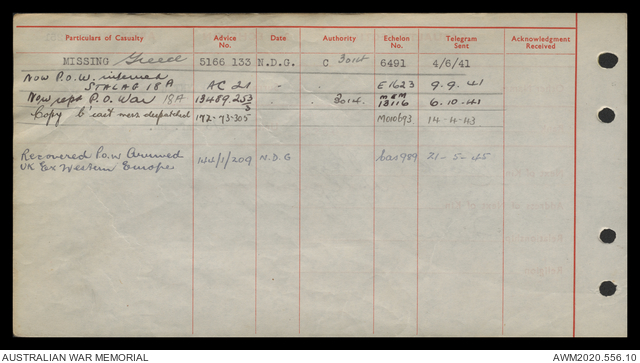 Particulars of Casualty Advice No. Date Authority Echelon No. Telegram Sent Acknowledgment Received
MISSING Greece 5166 133 N.D.G. C 3014 6491 4/6/41
Now P.O.W. interned
STALAG 18A AC 21 E1623 9.9.41
Now rept P.O. War 18A 13489.253/3 3014 MEM 13116 6.10.41
Copy mess despatched 172-73-305 M010693 14-4-43
Recovered P.o.W Arrived
UK Ex Western Europe W4/1/209 N.D.G bas989 21-5-45
AUSTRALIAN WAR MEMORIAL
AWM2020.556.10